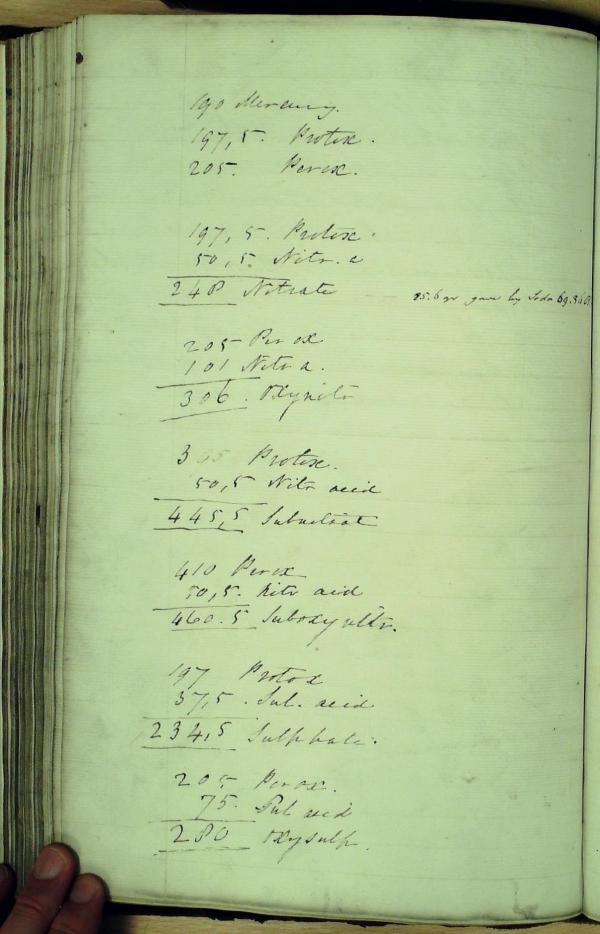 190 Mercury.
197,5. Protox.
205. Perox.
197,5. Protox.
50,5. Nitr. a
248 Nitrate
85.6 gr gave by Soda 69.3
205 Per ox
101 Nitr a.
306. Oxynitr
3 Protox.
50,5 Nitr acid
445,5 Subnitrat
410 Perox
50,5. Nitr acid
460.5 Suboxynitr.
197 Protox
37,5. Sul. acid
234,5 Sulphate.
205 Perox.
75. Sul acid
280 Oxysulp.